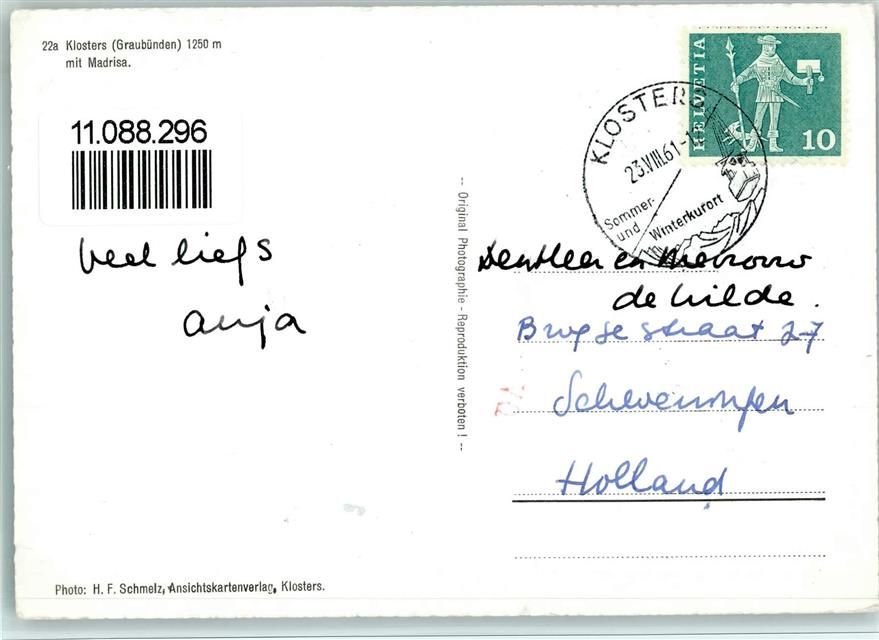 22a Klosters (Graubünden) 1250 m
mit Madrisa.
11.088.296
veel liefs
anja
-- Original Photographie - Reproduktion verboten ! --
HELVETIA
10
KLOSTERS
23.VIII.61-1
Sommer-
und Winterkurort
den Heer en Mevrouw
de Wilde.
Brugsestraat 27
Scheveningen
Holland
Photo: H. F. Schmelz, Ansichtskartenverlag, Klosters.